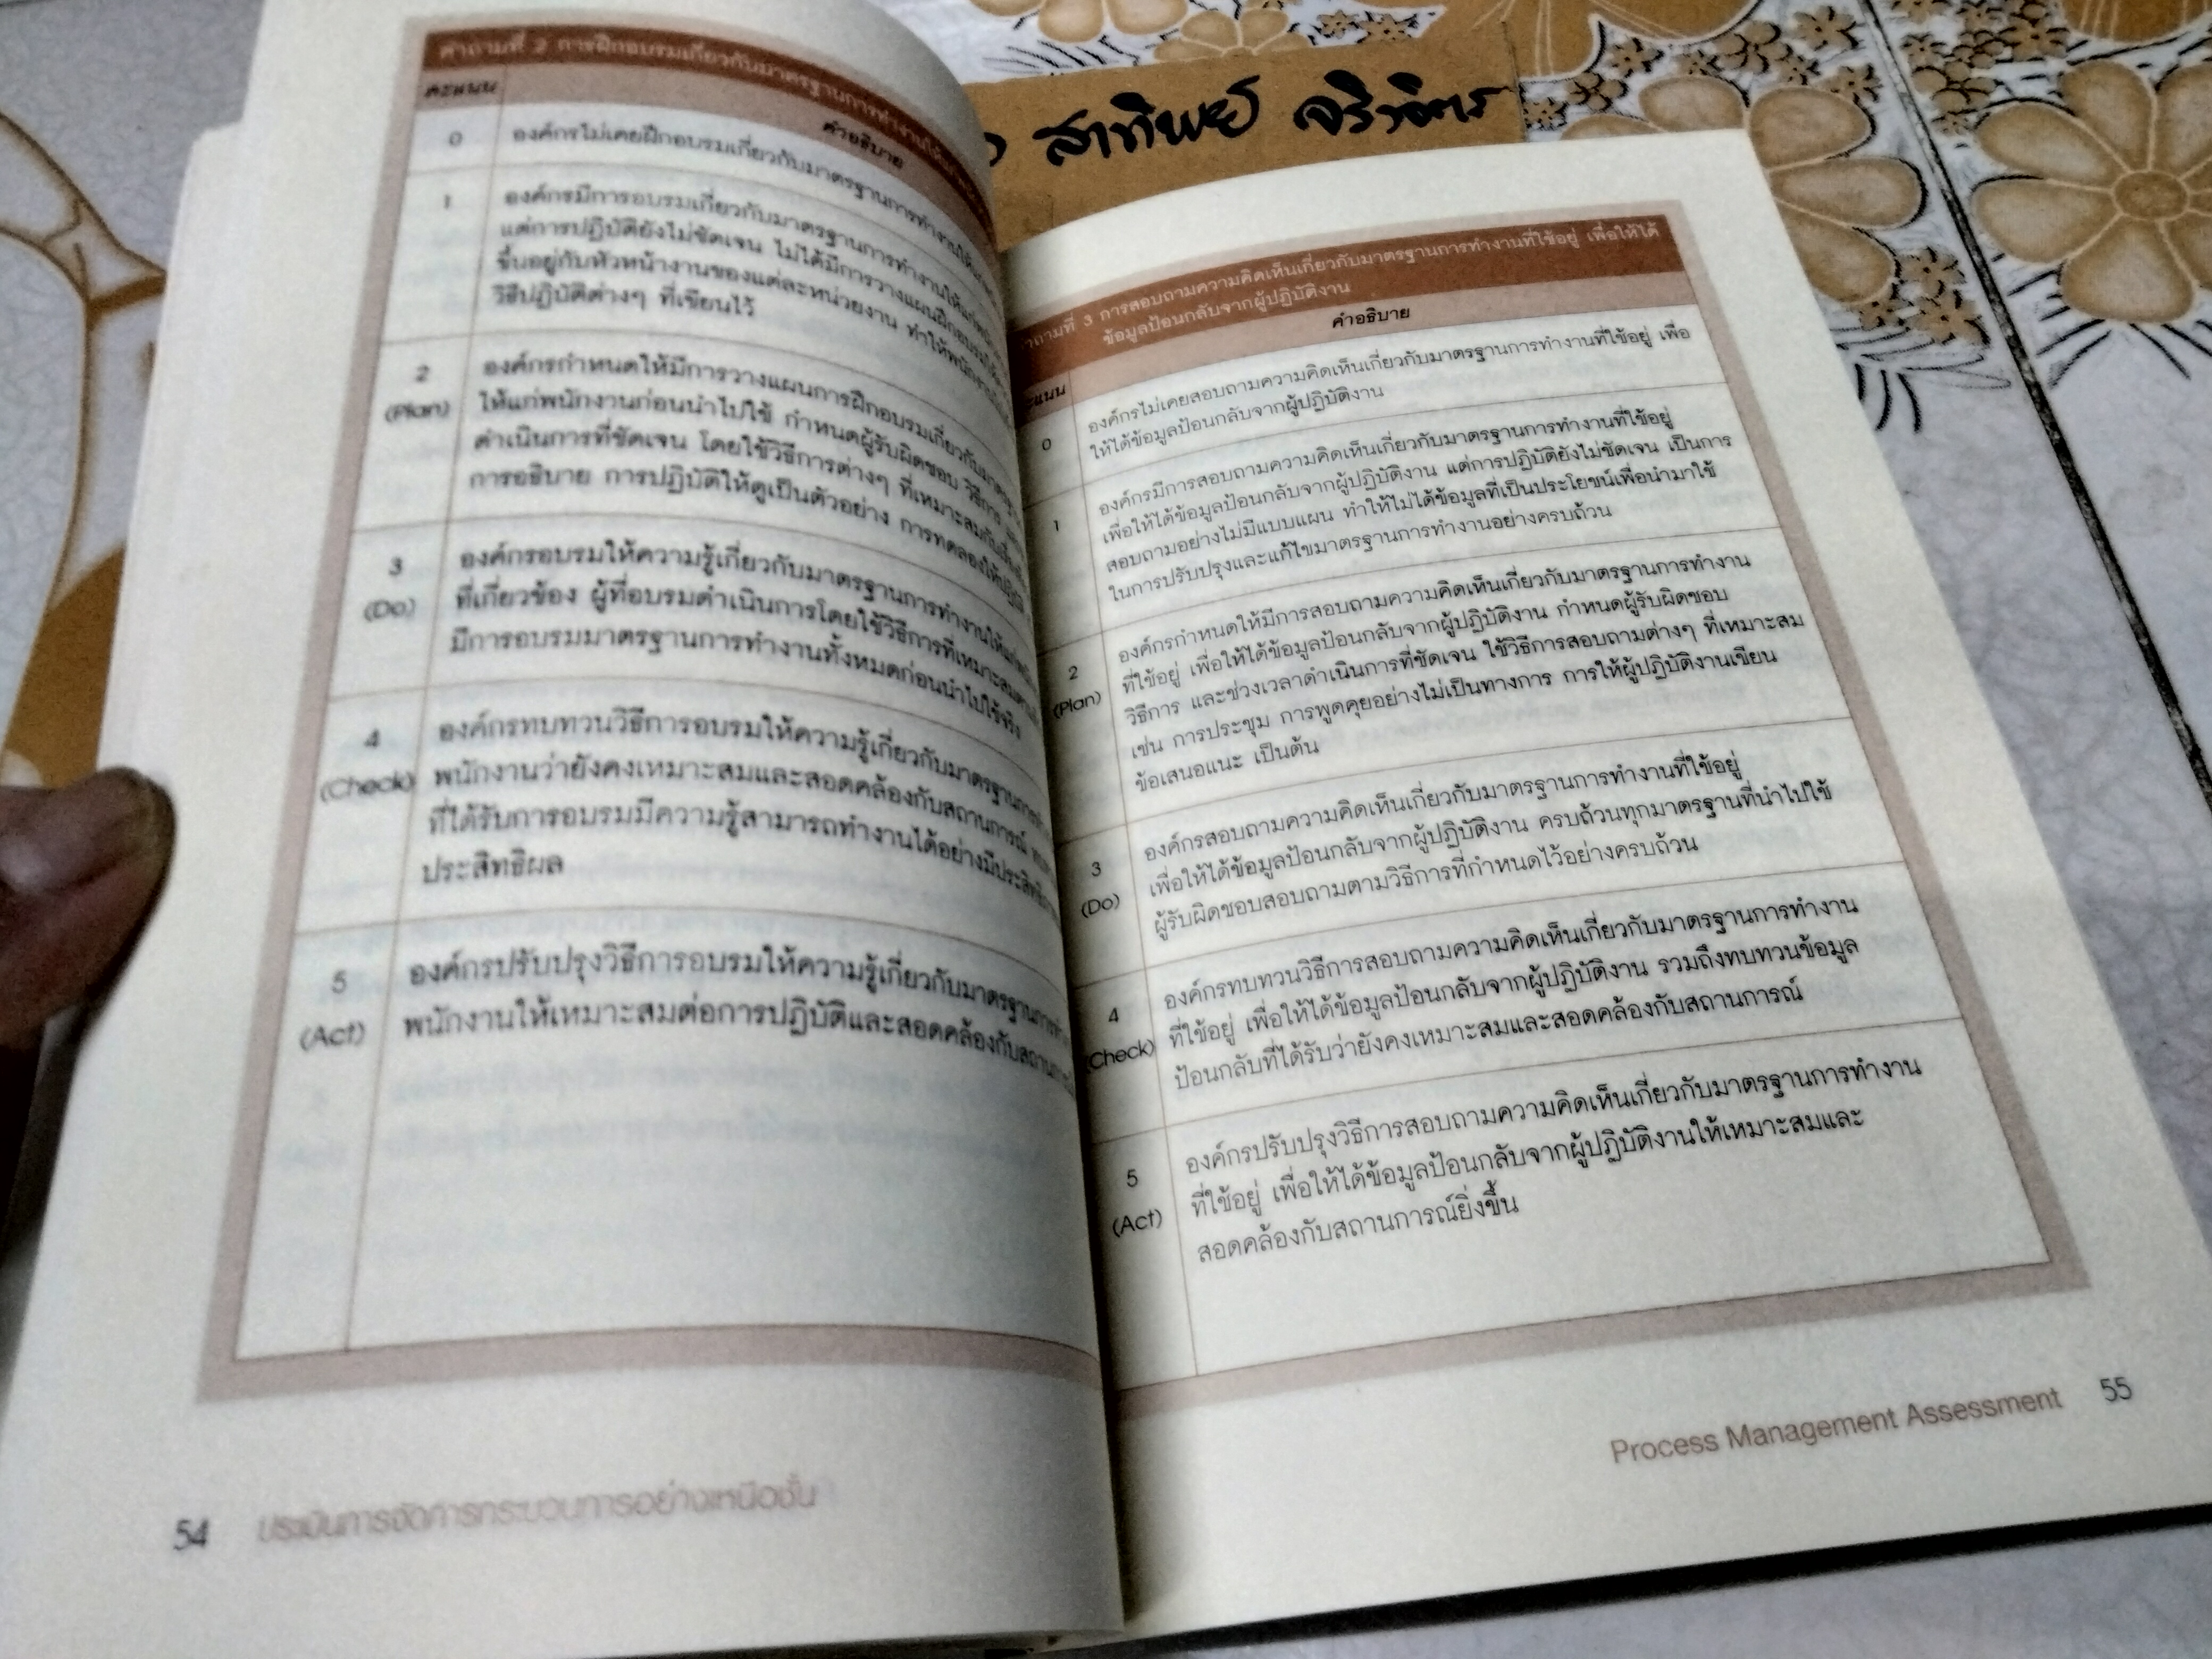 คำถามที่ 2 การฝึกอบรมเกี่ยวกับมาตรฐานการทำงานให้แก่
คะแนน
คำอธิบาย
0
องค์กรไม่เคยฝึกอบรมเกี่ยวกับมาตรฐานการทำงานให้แก่
1
องค์กรมีการอบรมเกี่ยวกับมาตรฐานการทำงานให้แก่
แต่การปฏิบัติยังไม่ชัดเจน ไม่ได้มีการวางแผนฝึกอบรม
ขึ้นอยู่กับหัวหน้างานของแต่ละหน่วยงาน ทำให้
วิธีปฏิบัติต่างๆ ที่เขียนไว้
2
(Plan)
องค์กรกำหนดให้มีการวางแผนการฝึกอบรมเกี่ยวกับ
ให้แก่พนักงานก่อนนำไปใช้ กำหนดผู้รับผิดชอบ วิธีการ
ดำเนินการที่ชัดเจน โดยใช้วิธีการต่างๆ ที่เหมาะสมกับ
การอธิบาย การปฏิบัติให้ดูเป็นตัวอย่าง การทดลองให้
3
(Do)
องค์กรอบรมให้ความรู้เกี่ยวกับมาตรฐานการทำงานให้แก่
ที่เกี่ยวข้อง ผู้ที่อบรมดำเนินการโดยใช้วิธีการที่เหมาะสม
มีการอบรมมาตรฐานการทำงานทั้งหมดก่อนนำไปใช้จริง
4
(Check)
องค์กรทบทวนวิธีการอบรมให้ความรู้เกี่ยวกับมาตรฐาน
พนักงานว่ายังคงเหมาะสมและสอดคล้องกับสถานการณ์
ที่ได้รับการอบรมมีความรู้สามารถทำงานได้อย่างมี
ประสิทธิผล
5
(Act)
องค์กรปรับปรุงวิธีการอบรมให้ความรู้เกี่ยวกับมาตรฐาน
พนักงานให้เหมาะสมต่อการปฏิบัติและสอดคล้องกับ
54 ประเมินการจัดการกระบวนการอย่างเหนือชั้น
สาทิพย์
ถามที่ 3 การสอบถามความคิดเห็นเกี่ยวกับมาตรฐานการทำงานที่ใช้อยู่ เพื่อให้ได้
ข้อมูลป้อนกลับจากผู้ปฏิบัติงาน
คำอธิบาย
0
องค์กรไม่เคยสอบถามความคิดเห็นเกี่ยวกับมาตรฐานการทำงานที่ใช้อยู่ เพื่อ
ให้ได้ข้อมูลป้อนกลับจากผู้ปฏิบัติงาน
1
องค์กรมีการสอบถามความคิดเห็นเกี่ยวกับมาตรฐานการทำงานที่ใช้อยู่
เพื่อให้ได้ข้อมูลป้อนกลับจากผู้ปฏิบัติงาน แต่การปฏิบัติยังไม่ชัดเจน เป็นการ
สอบถามอย่างไม่มีแบบแผน ทำให้ไม่ได้ข้อมูลที่เป็นประโยชน์เพื่อนำมาใช้
ในการปรับปรุงและแก้ไขมาตรฐานการทำงานอย่างครบถ้วน
2
(Plan)
องค์กรกำหนดให้มีการสอบถามความคิดเห็นเกี่ยวกับมาตรฐานการทำงาน
ที่ใช้อยู่ เพื่อให้ได้ข้อมูลป้อนกลับจากผู้ปฏิบัติงาน กำหนดผู้รับผิดชอบ
วิธีการ และช่วงเวลาดำเนินการที่ชัดเจน ใช้วิธีการสอบถามต่างๆ ที่เหมาะสม
เช่น การประชุม การพูดคุยอย่างไม่เป็นทางการ การให้ผู้ปฏิบัติงานเขียน
ข้อเสนอแนะ เป็นต้น
3
(Do)
องค์กรสอบถามความคิดเห็นเกี่ยวกับมาตรฐานการทำงานที่ใช้อยู่
เพื่อให้ได้ข้อมูลป้อนกลับจากผู้ปฏิบัติงาน ครบถ้วนทุกมาตรฐานที่นำไปใช้
ผู้รับผิดชอบสอบถามตามวิธีการที่กำหนดไว้อย่างครบถ้วน
4
(Check)
องค์กรทบทวนวิธีการสอบถามความคิดเห็นเกี่ยวกับมาตรฐานการทำงาน
ที่ใช้อยู่ เพื่อให้ได้ข้อมูลป้อนกลับจากผู้ปฏิบัติงาน รวมถึงทบทวนข้อมูล
ป้อนกลับที่ได้รับว่ายังคงเหมาะสมและสอดคล้องกับสถานการณ์
5
(Act)
องค์กรปรับปรุงวิธีการสอบถามความคิดเห็นเกี่ยวกับมาตรฐานการทำงาน
ที่ใช้อยู่ เพื่อให้ได้ข้อมูลป้อนกลับจากผู้ปฏิบัติงานให้เหมาะสมและ
สอดคล้องกับสถานการณ์ยิ่งขึ้น
Process Management Assessment 55